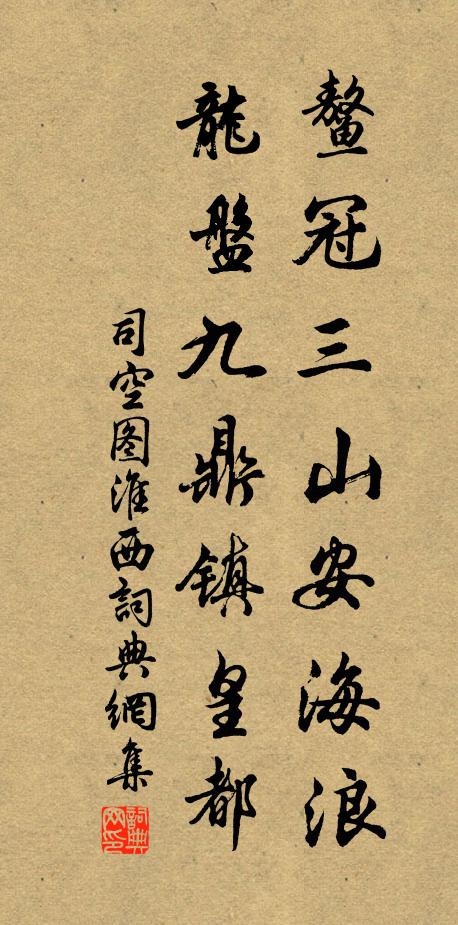 鼇冠三山安海浪
龍盤九鼎鎮皇都
司空图淮西詞典網集
詞典网印